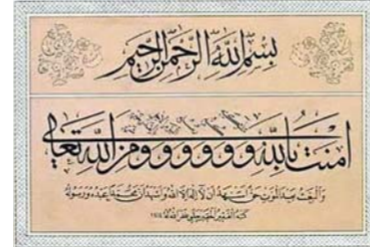 بسم الله الرحمن الرحيم
امنت بالله و و و و و و و من الله تعالى
والبعث بعد الموت حق اشهد ان لا اله الا الله واشهد ان محمدا عبده ورسوله
كتبه الفقير غفر الله له